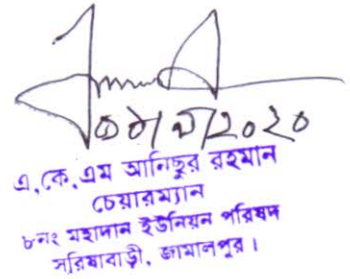 2020
এ,কে,এম আনিছুর রহমান
চেয়ারম্যান
৮নং মহাদান ইউনিয়ন পরিষদ
সরিষাবাড়ী, জামালপুর।